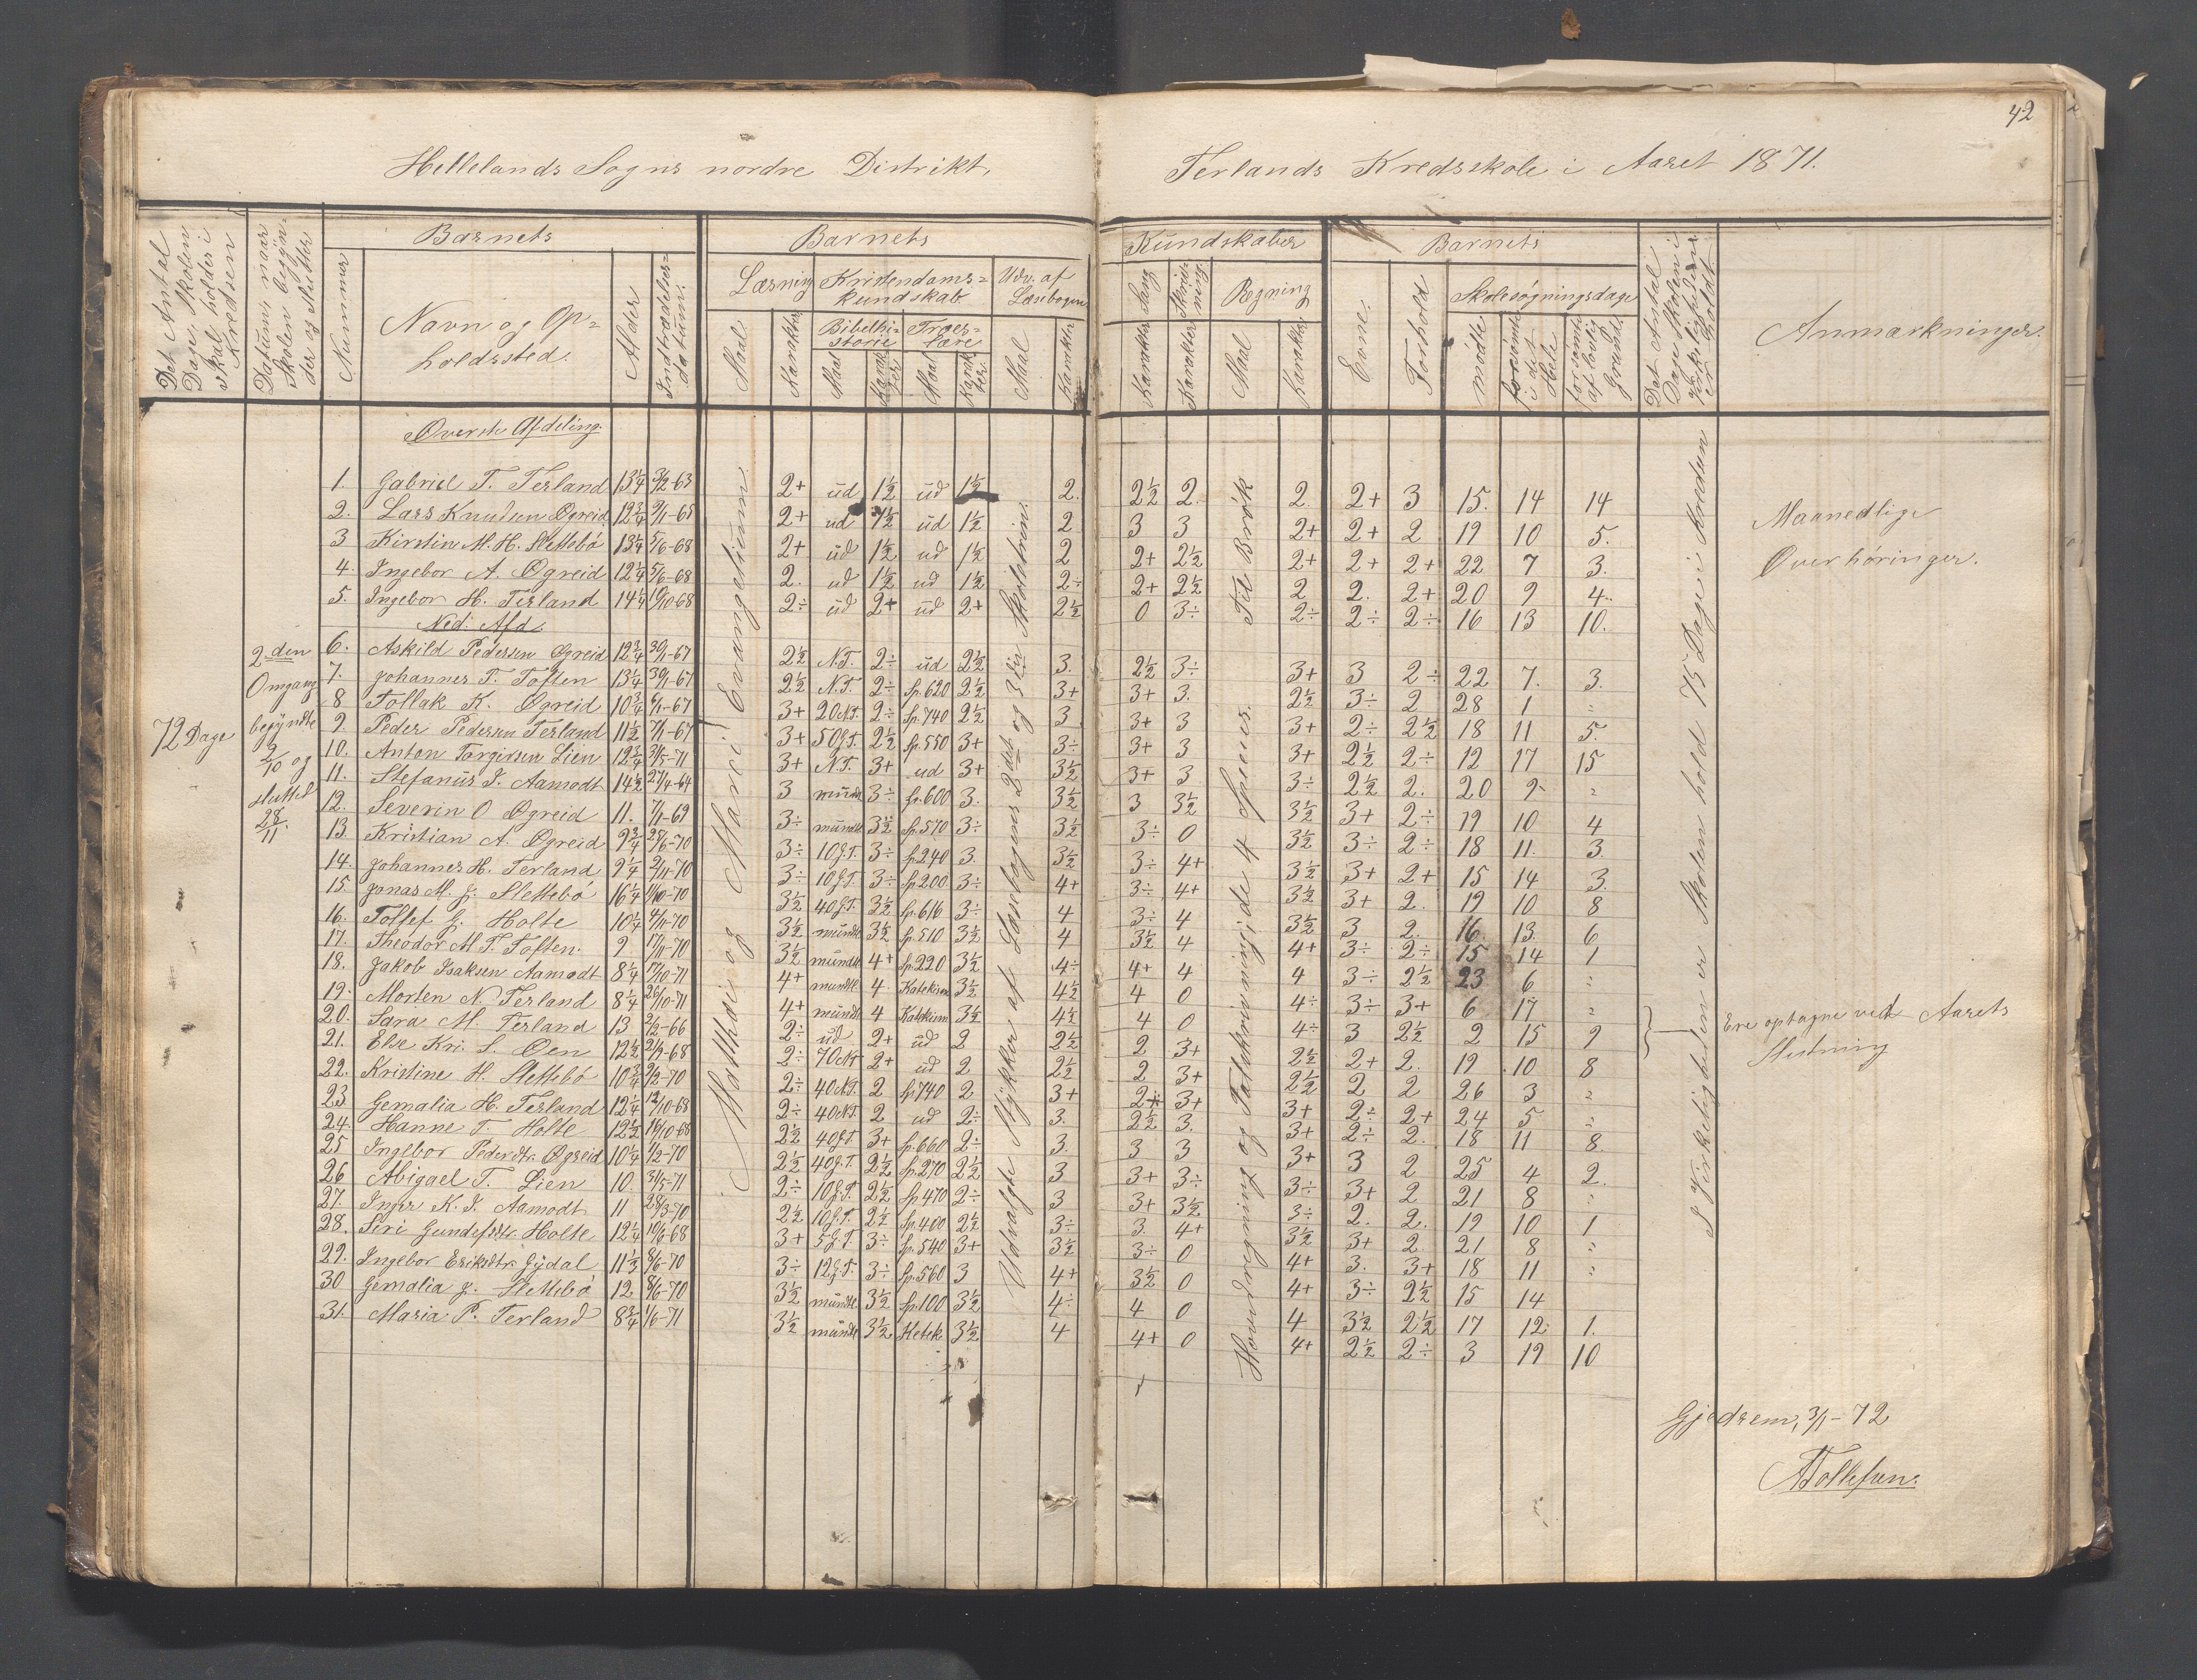 42
Hellelands Sogns nordre Distrikt,
Terlands Kredsskole i Aaret 1871.
Det Antal Dage, Skolen skal holdes i Kredsen
Datum, naar Skolen begynder og slutter
Barnets
Nummer
Navn og Opholdssted.
Alder
Indtrædelsesdatum.
Barnets
Læsning
Maal
Karakter
Kristendomskundskab
Bibelhistorie
Maal
Karakter
Troeslære
Maal
Karakter
Udv. af Læsebogen
Maal
Karakter
Kundskaber
Sang
Karakter
Skrivning
Karakter
Regning
Maal
Karakter
Barnets
Evne.
Forhold
Skolesøgningsdage
mødte
forsømte i det Hele
forsømte af lovlig Grund
Det Antal Dage Skolen i Virkeligheden er holdt
Anmærkninger.
Øverste Afdeling.
1. Gabriel T. Terland 13¼ 3/2-63 2+ ud 1½ ud 1½ 2. 2½ 2. 2 2+ 3 15. 14 14
2. Lars Knudsen Øgreid 12¾ 9/1-65 2+ ud 1½ ud 1½ 2 3 3 2+ 2+ 2 19 10 5.
3 Kirstin M. H. Slettebö 13¼ 5/6-68 2+ ud 1½ ud 1½ 2 2+ 2½ 2+ 2+ 2+ 22 7 3.
4. Ingebor A. Øgreid 12¼ 5/6-68 2. ud 1½ ud 1½ 2÷ 2+ 2½ 2 2. 2+ 20 9 4.
5. Ingebor H. Terland 14¼ 19/10-68 2÷ ud 2+ ud 2+ 2½ 0 3÷ 2÷ 2÷ 2÷ 16 13 10.
Ned. Afd.
6. Askild Pedersen Øgreid 12¾ 30/1-67 2½ N.T. 2÷ ud 2½ 3. 2½ 3÷ 3+ 3 2÷ 22 7. 3.
7. Johannes T. Toften 13¼ 30/1-67 2½ N.T. 2÷ Sp.620 2½ 3+ 3+ 3. 2½ 3÷ 2 28 1 "
8 Tollak K. Øgreid 10¾ 6/11-67 3+ 20N.T. 2÷ Sp.740 2½ 3 3+ 3 3+ 2÷ 2½ 18 11 5.
9. Peder Pedersen Terland 11½ 7/11-67 3+ 50G.T. 2½ Sp.550 3+ 3÷ 3+ 3 3+ 2½ 2÷ 12 17 15
10. Anton Torgersen Lien 12¾ 31/5-71 3+ N.T. 3+ ud 3+ 3½ 3+ 3 3÷ 2½ 2. 20 9 "
11. Stefanus J. Aamodt 14½ 27/4-64 3 mundt 3÷ Sp.600 3. 3½ 3 3½ 3½ 3+ 2÷ 19 10 4
12. Severin O Øgreid 11. 7/11-69 3÷ mundtl 3½ Sp.570 3÷ 3½ 3÷ 0 3½ 3÷ 2÷ 18 11. 3
13. Kristian A. Øgreid 9¾ 28/6-70 3÷ 10G.T. 3÷ Sp.240 3. 3½ 3÷ 4+ 3½ 3+ 2+ 15 14 3
14. Johannes H. Terland 9¼ 9/11-70 3÷ 10G.T. 3÷ Sp.200 3÷ 4+ 3÷ 4+ 3½ 3+ 2. 19 10 8
15. Jonas M. J. Slettebö 16¼ 11/10-70 3½ 40G.T. 3½ Sp.616 3÷ 4 3÷ 4 3½ 3 2. 16. 13. 6
16. Tollef G. Holte 10¼ 4/11-70 3½ mundtl 3½ Sp.510 3½ 4 3½ 4 4+ 3÷ 2÷ 15 14 1
17. Theodor M. T. Toften. 9 17/11-70 3½ mundtl 4+ Sp.220 3½ 4÷ 4+ 4 4 3÷ 2½ 23 6 "
18. Jakob Isaksen Aamodt 8¼ 17/10-71 4+ mundtl 4. Katekism 3½ 4½ 4 0 4÷ 3÷ 3+ 6 17 "
19. Morten N. Terland 8¼ 26/10-71 4+ mundtl 4 Katekism 3½ 4½ 4 0 4÷ 3 2½ 2 15 9
20. Sara M. Terland 13 2/2-66 2÷ ud 2+ ud 2 2½ 2 3+ 2½ 2+ 2. 19 10 8
21. Else Kri. S. Øen 12½ 21/9-68 2÷ 70NT 2+ ud 2 2½ 2 3+ 2½ 2 2 26 3 "
22. Kristine H. Slettebö 10¾ 2/2-70 2÷ 40N.T. 2 Sp740 2 3+ 2÷ 3+ 3+ 2÷ 2+ 24 5 "
23 Gemalia H. Terland 12¼ 12/10-68 2÷ 40N.T. 2 ud 2÷ 3. 2½ 3. 3+ 2÷ 2. 18 11 8.
24. Hanne T. Holte 12½ 19/10-68 2½ 40G.T. 3+ Sp.660 2÷ 3. 3 3 3+ 3 2 25 4 2.
25 Ingebor Pedersdtr. Øgreid 10¼ 1/2-70 2½ 40G.T. 2½ Sp.270 2½ 3 3+ 3÷ 3÷ 3+ 2 21 8 "
26 Abigael T. Lien 10. 31/5-71 2÷ 10G.T. 2½ Sp470 2÷ 3 3+ 3½ 3÷ 2. 2. 19 10 1
27. Inger K. J. Aamodt 11 28/3-70 2½ 10G.T. 2½ Sp.400 2½ 3÷ 3. 4+ 3½ 3+ 2 21 8 "
28. Siri Gundesdtr. Holte 12¼ 19/6-68 3+ 5G.T. 3÷ Sp.540 3+ 3½ 3÷ 0 4+ 3. 3+ 18 11 "
29. Ingebor Eriksdtr. Gydal 11½ 8/6-70 3÷ 12G.T. 3÷ Sp.560 3 4+ 3½ 0 4+ 3÷ 2½ 15 14
30 Gemalia J. Slettebö 12 8/6-70 3½ mundtl 3½ Sp.100 3½ 4÷ 4 0 4 3½ 2½ 17 12 1.
31. Maria P. Terland 8¾ 1/6-71 3½ mundtl 3½ 3½ 4 4+ 0 4+ 2½ 2÷ 3 19 10
72 Dage
2den
Omgang
begyndte
2/10 og
sluttet
28/11.
Matthæi og Marci Evangelium.
Udvalgte Stykker af Læsebogens 2det og 3die Skoletrin.
Hovedregning og Tavleregning i de 4 Species. Til Brøk
I Virkeligheden er Skolen holdt 75 Dage i Kredsen
Maanedlige
Overhøringer.
Ere optagne ved Aarets
Slutning
Gjedrem, 3/1-72
Tollefsen.